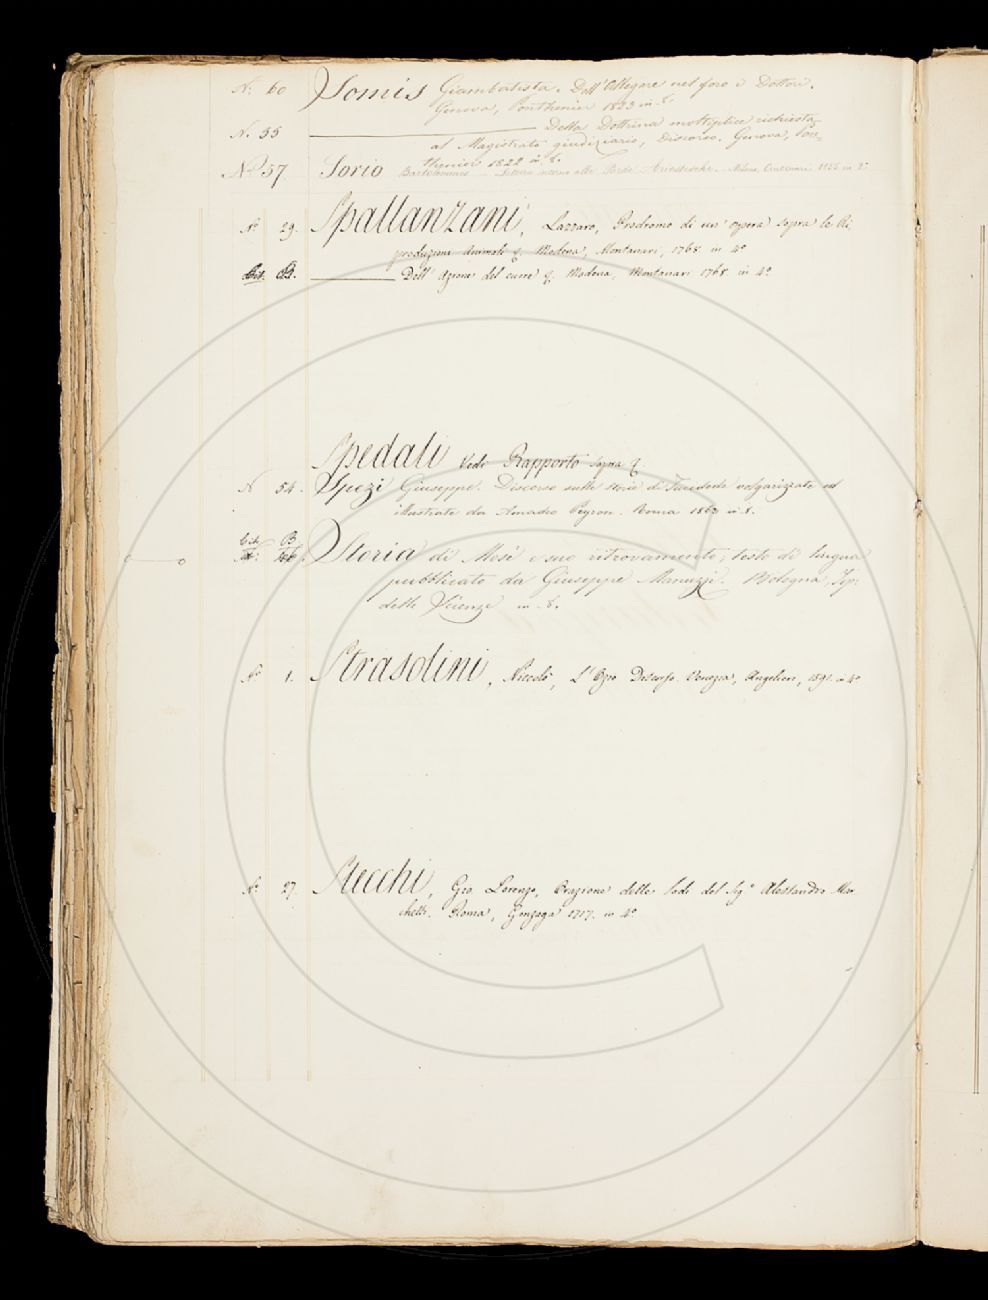 N. 60 Somis Giambatista. Dell'Allegare nel foro i Dottori.
Genova, Ponthenier 1823 in 8.
N. 55 Della Dottrina moltiplice richiesta
al Magistrato giudiziario, Discorso. Genova, Pon=
thenier 1822 in 8.
No 57 Sorio Bartolommeo Lettera intorno alle Milano, 1855 in 8o
No 29. Spallanzani, Lazzaro, Prodromo di un' opera sopra le Ri
produzioni Animali q. Modena, Montanari, 1768. in 4o
Dell' Azione del cuore q. Modena, Montanari 1768. in 4o
Spedali Vedi Rapporto sopra q
N 54. Spezi Giuseppe. Discorso sulle storie di Tucidide volgarizzate ed
illustrate da Amadeo Peyron. Roma 1863 in 8.
B
Storia di Mosè e suo ritrovamento, testo di lingua
pubblicato da Giuseppe Manuzzi. Bologna, Tip:
delle Scienze in 8.
No 1. Strasolini, Niccolò, L'Ozio Discorso. Venezia, Angelieri, in 4o
No 27. Stecchi, Gio. Lorenzo, Orazione delle Lodi del Sigo Alessandro Mar
chetti. Roma, Gonzaga 1717. in 4o